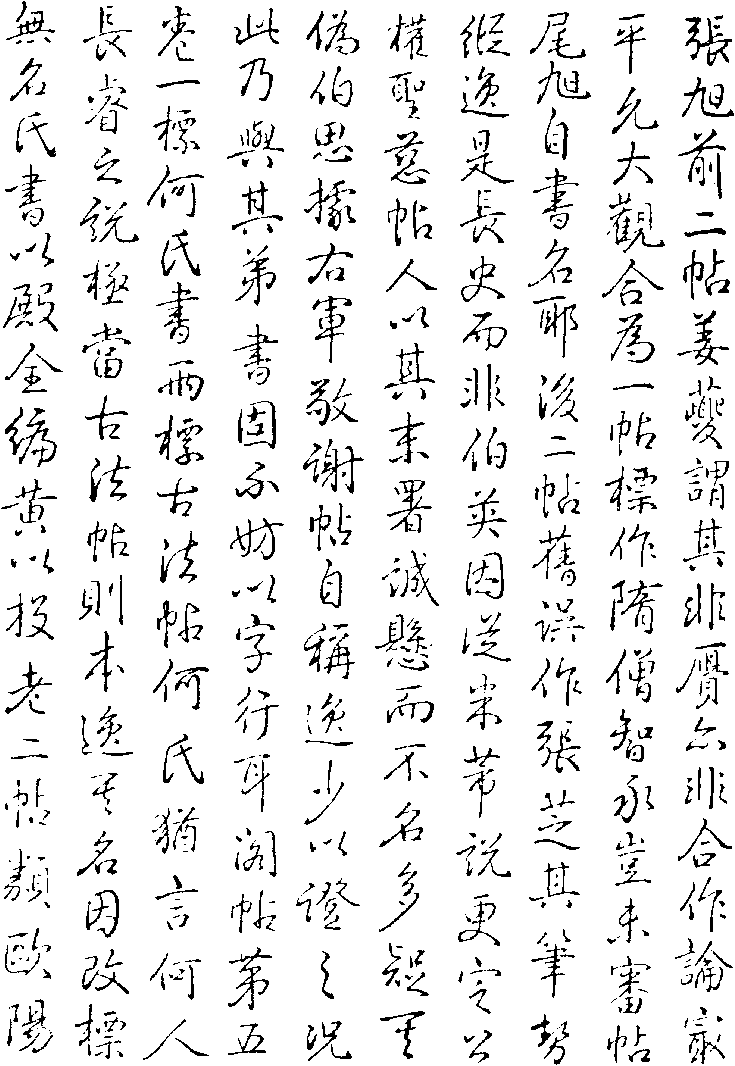 張旭前二帖姜夔謂其非贋亦非合作論冣
平允大觀合為一帖標作隋僧智永豈未審帖
尾旭自書名耶後二帖舊誤作張芝其筆勢
縱逸是長史而非伯英因從米芾說更定公
權聖慈帖人以其末署誠懸而不名多疑其
偽伯思據右軍敬謝帖自稱逸少以證之況
此乃與其弟書固不妨以字行耳閣帖第五
卷一標何氏書兩標古法帖何氏猶言何人
長睿之說極當古法帖則本逸其名因改標
無名氏書以殿全編黃以投老二帖類歐陽